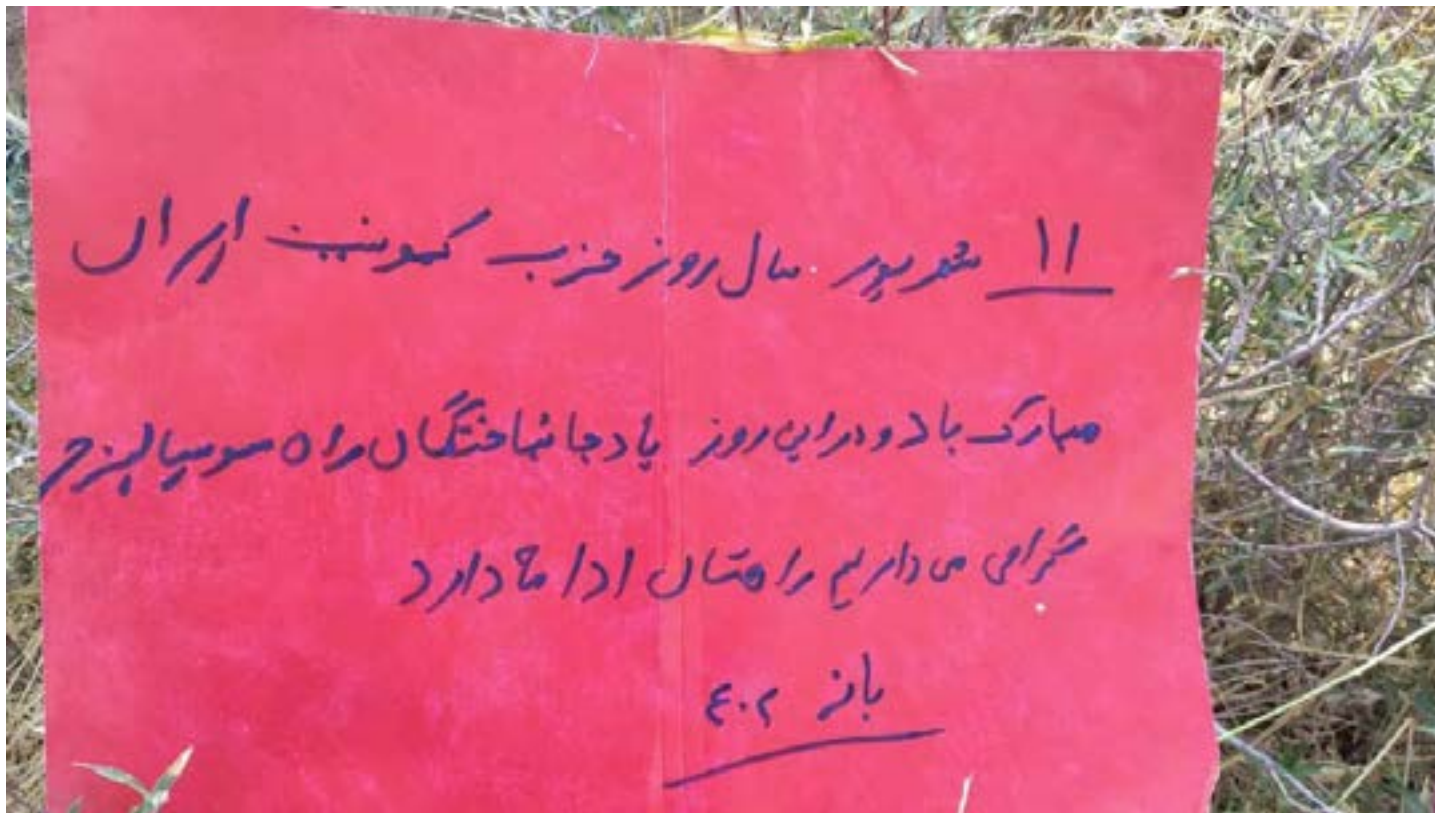 ۱۱ شهریور سال روز حزب کمونیست ایران
مبارک باد و در این روز یاد جانباختگان راه سوسیالیزم
گرامی می داریم راهشان ادامه دارد
بانه ۴۰۲